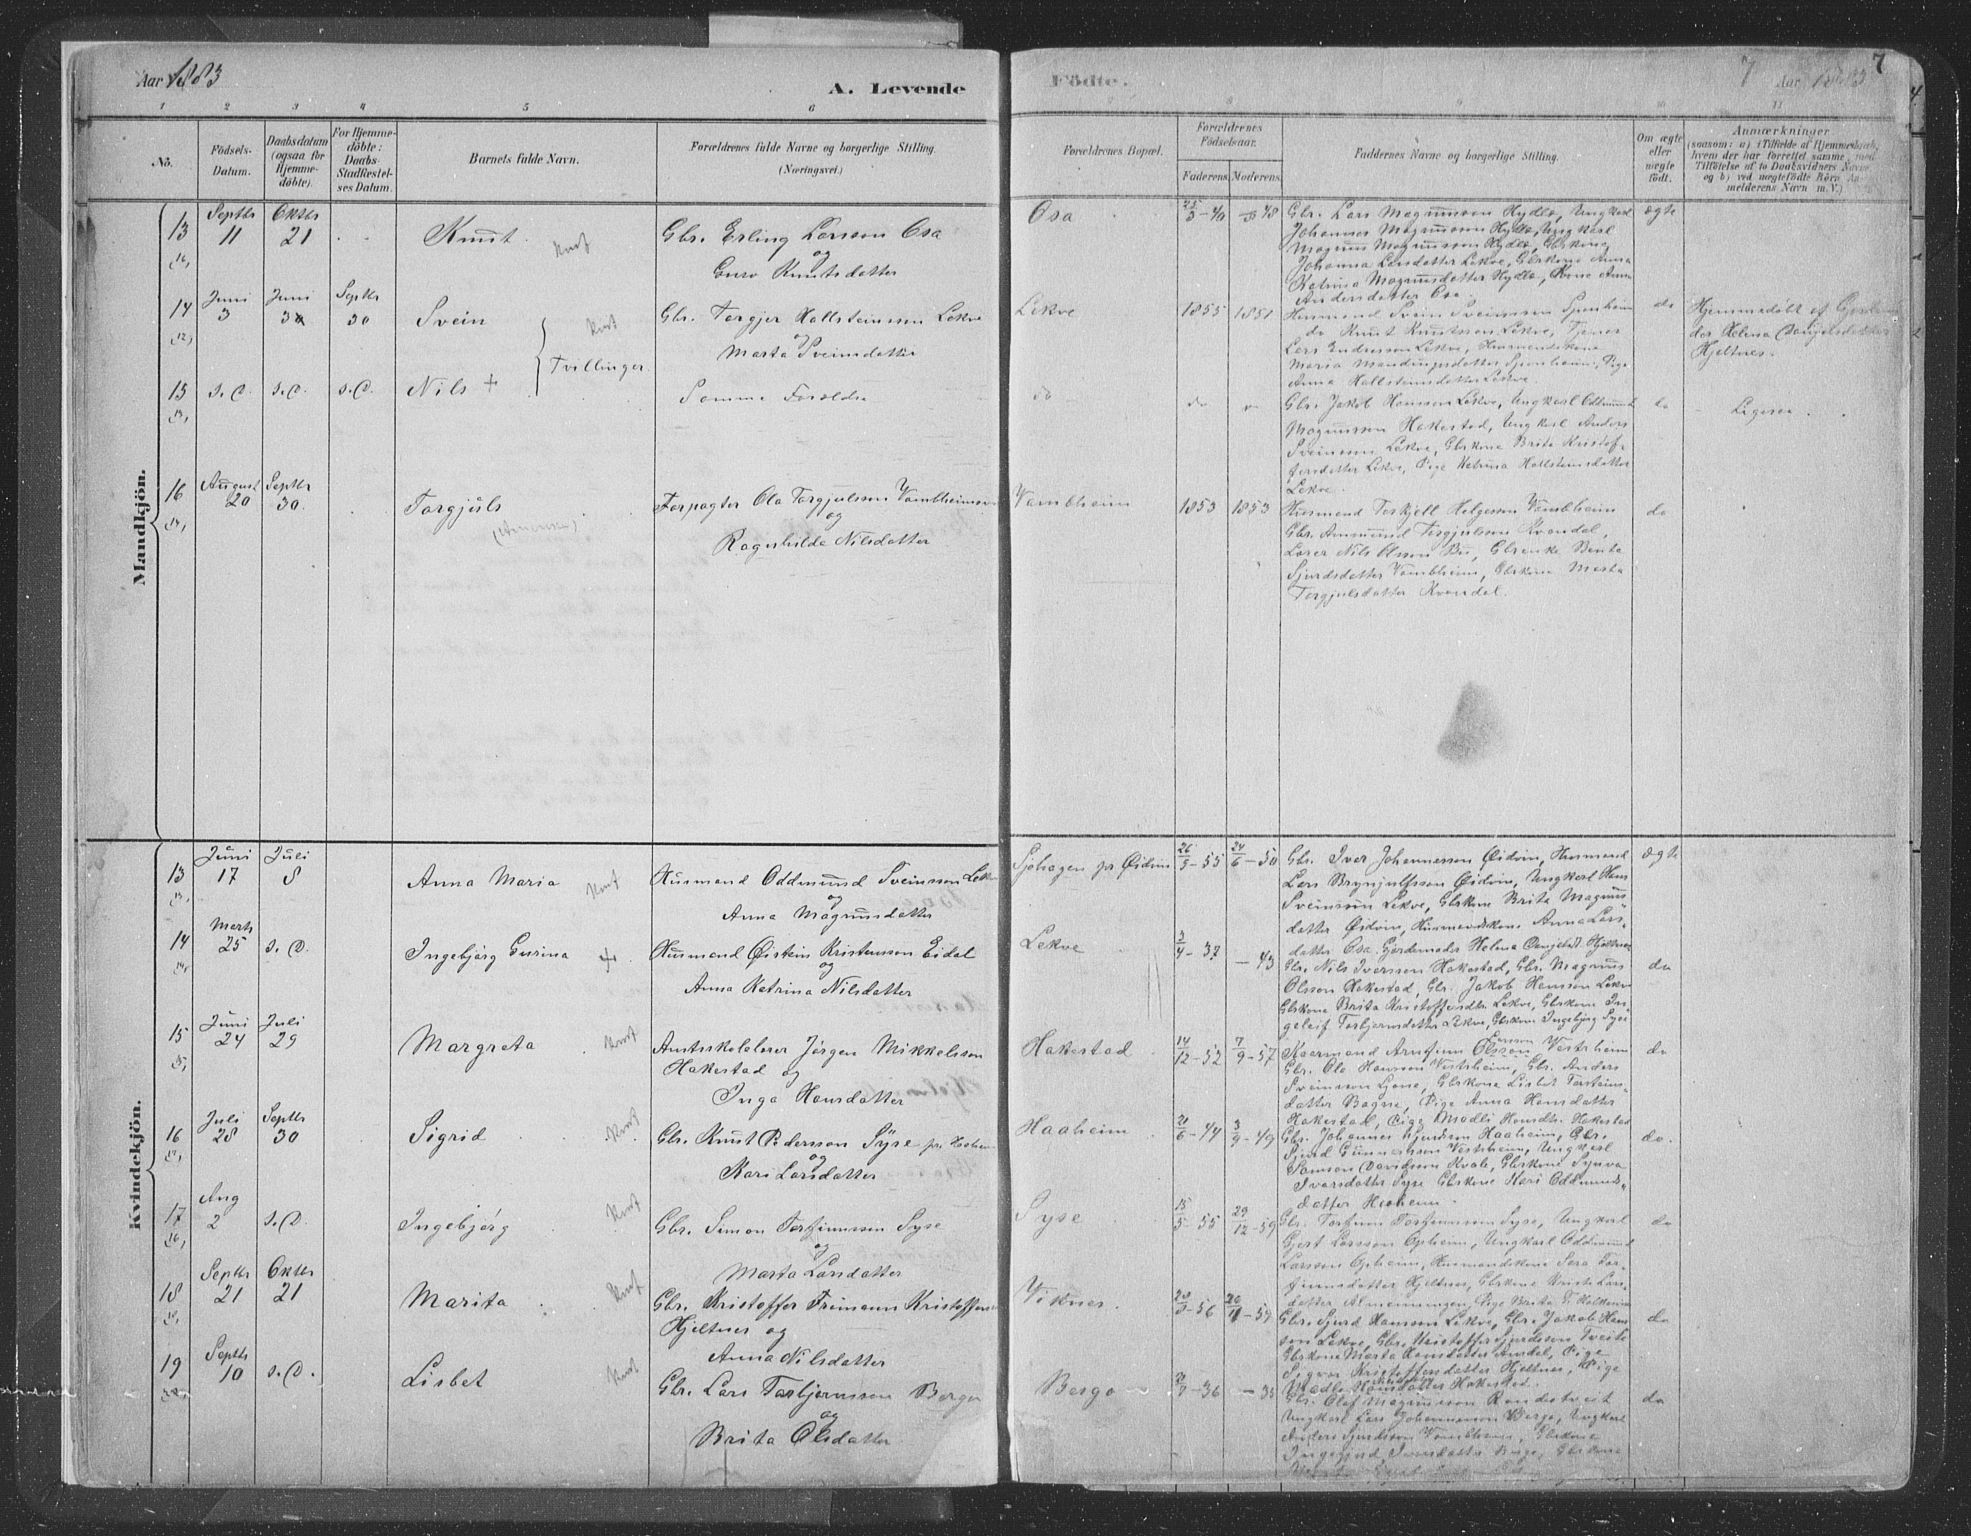 Aar 1883
A. Levende
Födte.
7
Aar 1883
7
1 2 3 4 5 6
8 9 10 11
No.
Födsels-Datum.
Daabsdatum (ogsaa för Hjemme-döbte).
For Hjemme-döbte: Daabs-Stadfæstel-ses Datum.
Barnets fulde Navn.
Forældrenes fulde Navne og borgerlige Stilling. (Næringsvei.)
Forældrenes Bopæl.
Forældrenes Födselsaar.
Faderens. Moderens.
Faddernes Navne og borgerlige Stilling.
Om ægte eller uægte födt.
Anmærkninger
(saasom: a) i Tilfælde af Hjemmedaab, hvem der har forrettet samme, med Tilföielse af to Daabsvidners Navne og b) ved uægtefödte Börn Anmelderens Navn m. V.)
Mandkjön.
13 Septbr 11 Oktbr 21 Knut
Gbr. Erling Larsson Osa
og
Guro Knutsdatter
Osa 40 48
Gbr. Lars Magnusson Hydle, Ungkarl
Johannes Magnusson Hydle, Ungkarl
Magnus Magnusson Hydle, Gbrkone
Johanna Larsdatter Lekve, Gbrkone Anna
Katrina Magnusdatter Hydle, Kone Anna
Andersdatter Osa.
ægte
14 Juni 3 Juni 3 Septbr 30 Svein
Tvillinger
Gbr. Torgjer Hallsteinsson Lekve
og
Marta Sveinsdatter
Lekve 1855 1851
Husmand Svein Sveinsson Sjonheim
do Knut Knutsson Lekve, Tjener
Lars Endresson Lekve, Husmandskone
Maria Sjonheim, Pige
Anna Hallsteinsdatter Lekve
do
Hjemmedöbt af Gjordemo
der Helena Danjelsdatter
Hjeltnes.
15 s. D. s. D. s. D. Nils +
Samme Foreldre
do do do
Gbr. Jakob Hansson Lekve, Ungkarl Oddmund
Magnusson Hakestad, Ungkarl Anders
Sveinsson Lekve, Gbrkone Brita Kristof-
fersdatter Lekve, Pige Katrina Hallsteinsdatter
Lekve.
do
Ligesaa.
16 August 20 Septbr 30 Torgjuls
Forpagter Ola Torgjulsson Vambheim
og
Ragnhilde Nilsdatter
Vambheim 1853 1853
Husmand Torkjell Helgesson Vambheim
Gbr. Aamund Torgjulsson Kvandal,
Lærer Nils Olsson Bu, Gbrenke Benta
Sjurdsdatter Vambheim, Gbrkone Marta
Torgjulsdatter Kvandal.
do
Kvindekjön.
13 Juni 17 Juli 8 Anna Maria
Husmand Oddmund Sveinsson Lekve
og
Anna Magnusdatter
Sjohagen pr Øidvin 26/9-55 24/6-50
Gbr. Iver Johannesson Øidvin, Husmand
Lars Brynjulfsson Øidvin, Ungkarl Hans
Sveinsson Lekve, Gbrkone Brita Magnus-
datter Øidvin, Husmandskone Anna Lars-
datter Osa, Gjordemoder Helena Danjelsd. Hjeltnes
ægte
14 Marts 25 s. D. Ingebjørg Gurina +
Husmand Øistein Kristensson Eidal
og
Anna Katrina Nilsdatter
Lekve 3/4-37 -43
Gbr. Nils Iversson Hakestad, Gbr. Magnus
Olsson Hakestad, Gbr. Jakob Hansson Lekve
Gbrkone Brita Kristoffersdtr. Lekve, Gbrkone In-
geleif Torbjørnsdatter Lekve, Gbrkone Ingebjørg Syse
do
15 Juni 24 Juli 29 Margreta
Amtsskolelærer Jørgen Mikkelsson
Hakestad og
Inga Hansdatter
Hakestad 14/12-52 7/9-57
Kaarmand Arnfinn Olsson Vestrheim
Gbr. Ola Hansson Vestrheim, Gbr. Anders
Sveinsson Lione, Gbrkone Lisbet Torsteins-
datter Bagne, Pige Anna Hansdatter
Hakestad, Pige Madli Hansdtr. Hakestad
do
16 Juli 28 Septbr 30 Sigrid
Gbr. Knut Pedersson Syse pr. Haaheim
og
Kari Larsdatter
Haaheim 21/6-44 3/9-49
Gbr. Johannes Sjurdsson Haaheim, Gbr.
Sjurd Gunnarsson Vestrheim, Ungkarl
Samson Davidsson Kvale, Gbrkone Synva
Ivarsdatter Syse Gbrkone Kari Oddmunds-
datter Haaheim.
do.
17 Aug 2 s. D. Ingebjörg
Gbr. Simon Torfinnsson Syse
og
Marta Larsdatter
Syse 15/5-55 29/12-59
Gbr. Torfinn Torfinnsson Syse, Ungkarl
Gjert Larsson Opheim, Ungkarl Oddmund
Larsson Opheim, Husmandskone Sera Tor-
finnsdatter Hjeltnes, Gbrkone Kristi Lars-
datter Almenningen, Pige Brita T. Halkeim
do
18 Septbr 21 Oktbr 21 Marita
Gbr. Kristoffer Freimann Kristoffersson
Hjeltnes og
Anna Nilsdatter
Viknes. 56 59
Gbr. Sjurd Hansson Lekve, Gbr. Jakob Hans-
son Lekve, Gbr. Kristoffer Sjurdsson Tveite
Gbrkone Marta Hansdatter, Pige
Sigvor Kristoffersdatter Hjeltnes, Pige
Madle Hansdatter Hakestad.
do
19 Septbr 10 s. D. Lisbet
Gbr. Lars Torbjørnsson Berge
og
Brita Olsdatter
Berge 36 -35
Gbr. Olaf Magnusson Rondestveit
Ungkarl Lars Johannesson Berge, Ungkarl
Anders Sjurdsson Vambheim, Gbrkone
Ingebjørd Iversdatter Berge, Gbrkone
do